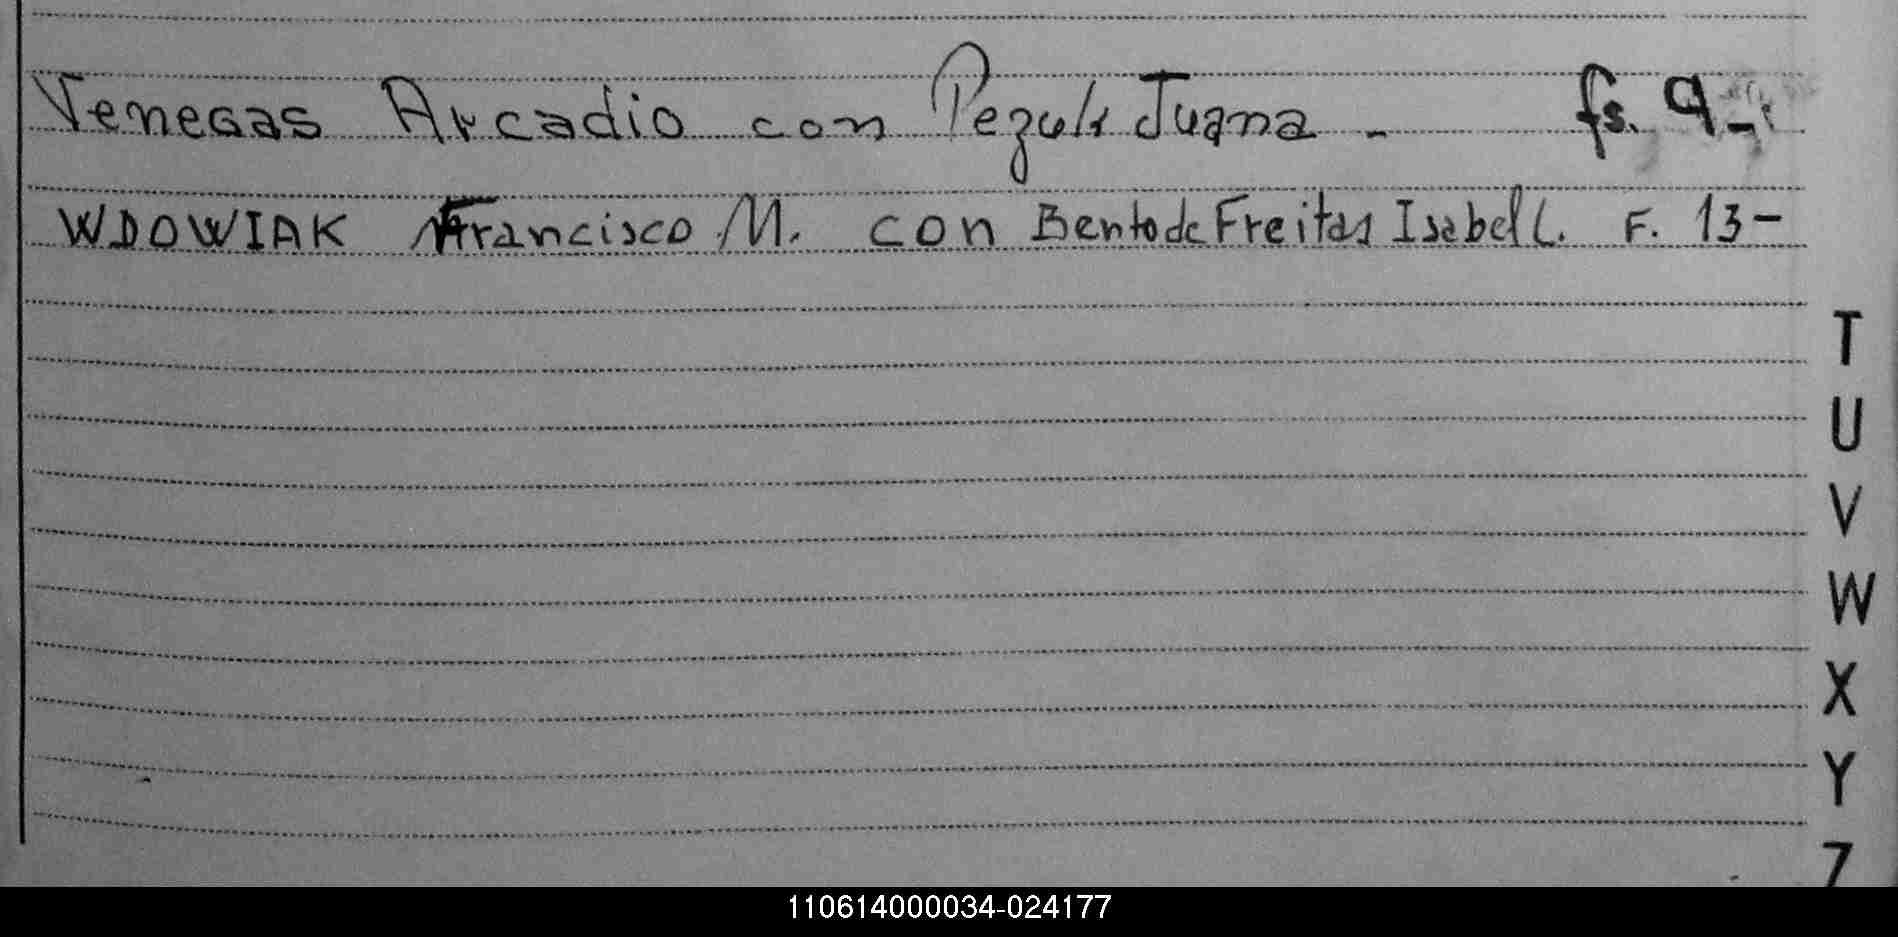 Venegas Arcadio con Juana - fs. 9-
WDOWIAK Francisco M. con Bento de Freitas Isabel C. F. 13-
T
U
V
W
X
Y
Z
110614000034-024177